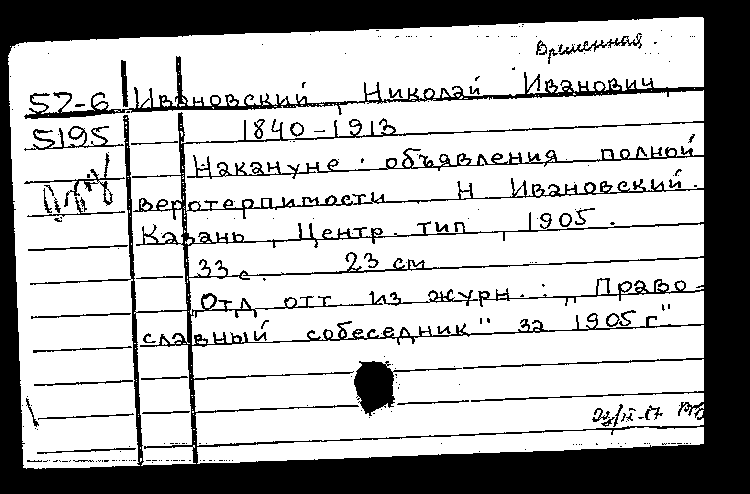 Временная.
57-6 Ивановский, Николай Иванович,
5195 1840-1913
Накануне объявления полной
веротерпимости, Н Ивановский.
Казань, Центр. тип, 1905.
33 с. 23 см
„Отд отт из журн.: „Право-
славный собеседник" за 1905 г"